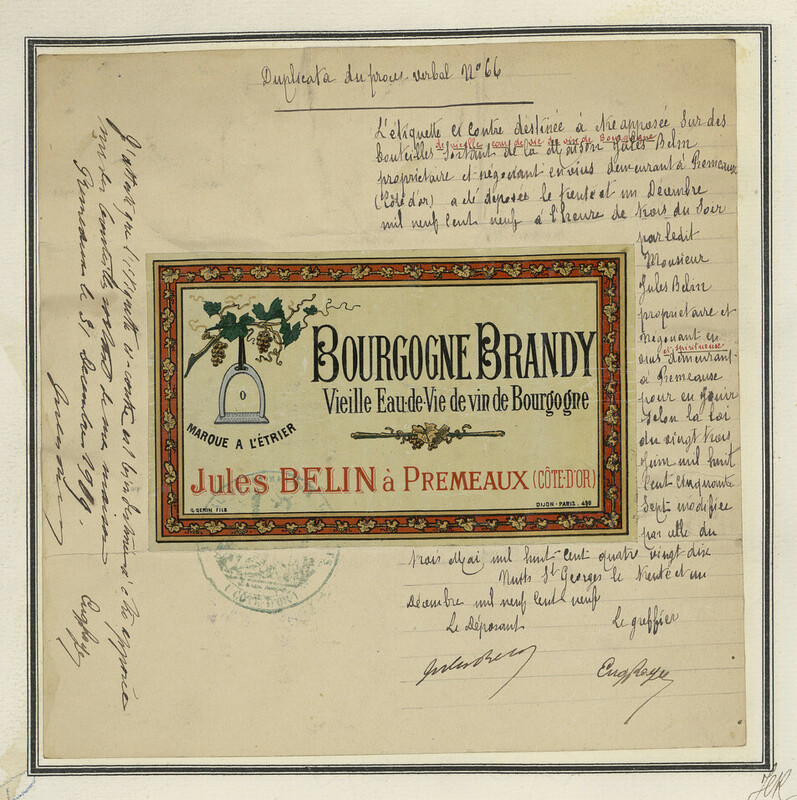 Duplicata du proces verbal N° 66
L'étiquette ci contre destinée à être apposée sur des
de vieille eau de vie de vin de Bourgogne
bouteilles sortant de la Maison Jules Belin
propriétaire et négociant en vins demeurant à Premeaux
(Côte d'or) a été déposée le trente et un Décembre
mil neuf cent neuf à l'heure de trois du soir
par ledit
Monsieur
Jules Belin
propriétaire et
négociant en
et spiritueux
vins demeurant
à Premeaux
pour en jouir
selon la loi
du vingt trois
Juin mil huit
cent cinquante
sept modifiée
par celle du
trois Mai mil huit cent quatre vingt dix
Nuits St Georges le trente et un
Décembre mil neuf cent neuf
Le Déposant
Le greffier
Jules Belin
BOURGOGNE BRANDY
Vieille Eau-de-Vie de vin de Bourgogne
MARQUE A L'ÉTRIER
Jules BELIN à PREMEAUX (CÔTE-D'OR)
G. GEMIN FILS
DIJON-PARIS. 498
J'atteste que l'étiquette ci-contre est bien destinée à être apposée
sur les bouteilles sortant de ma maison
Premeaux le 31 Decembre 1909.
(CÔTE-D'OR)